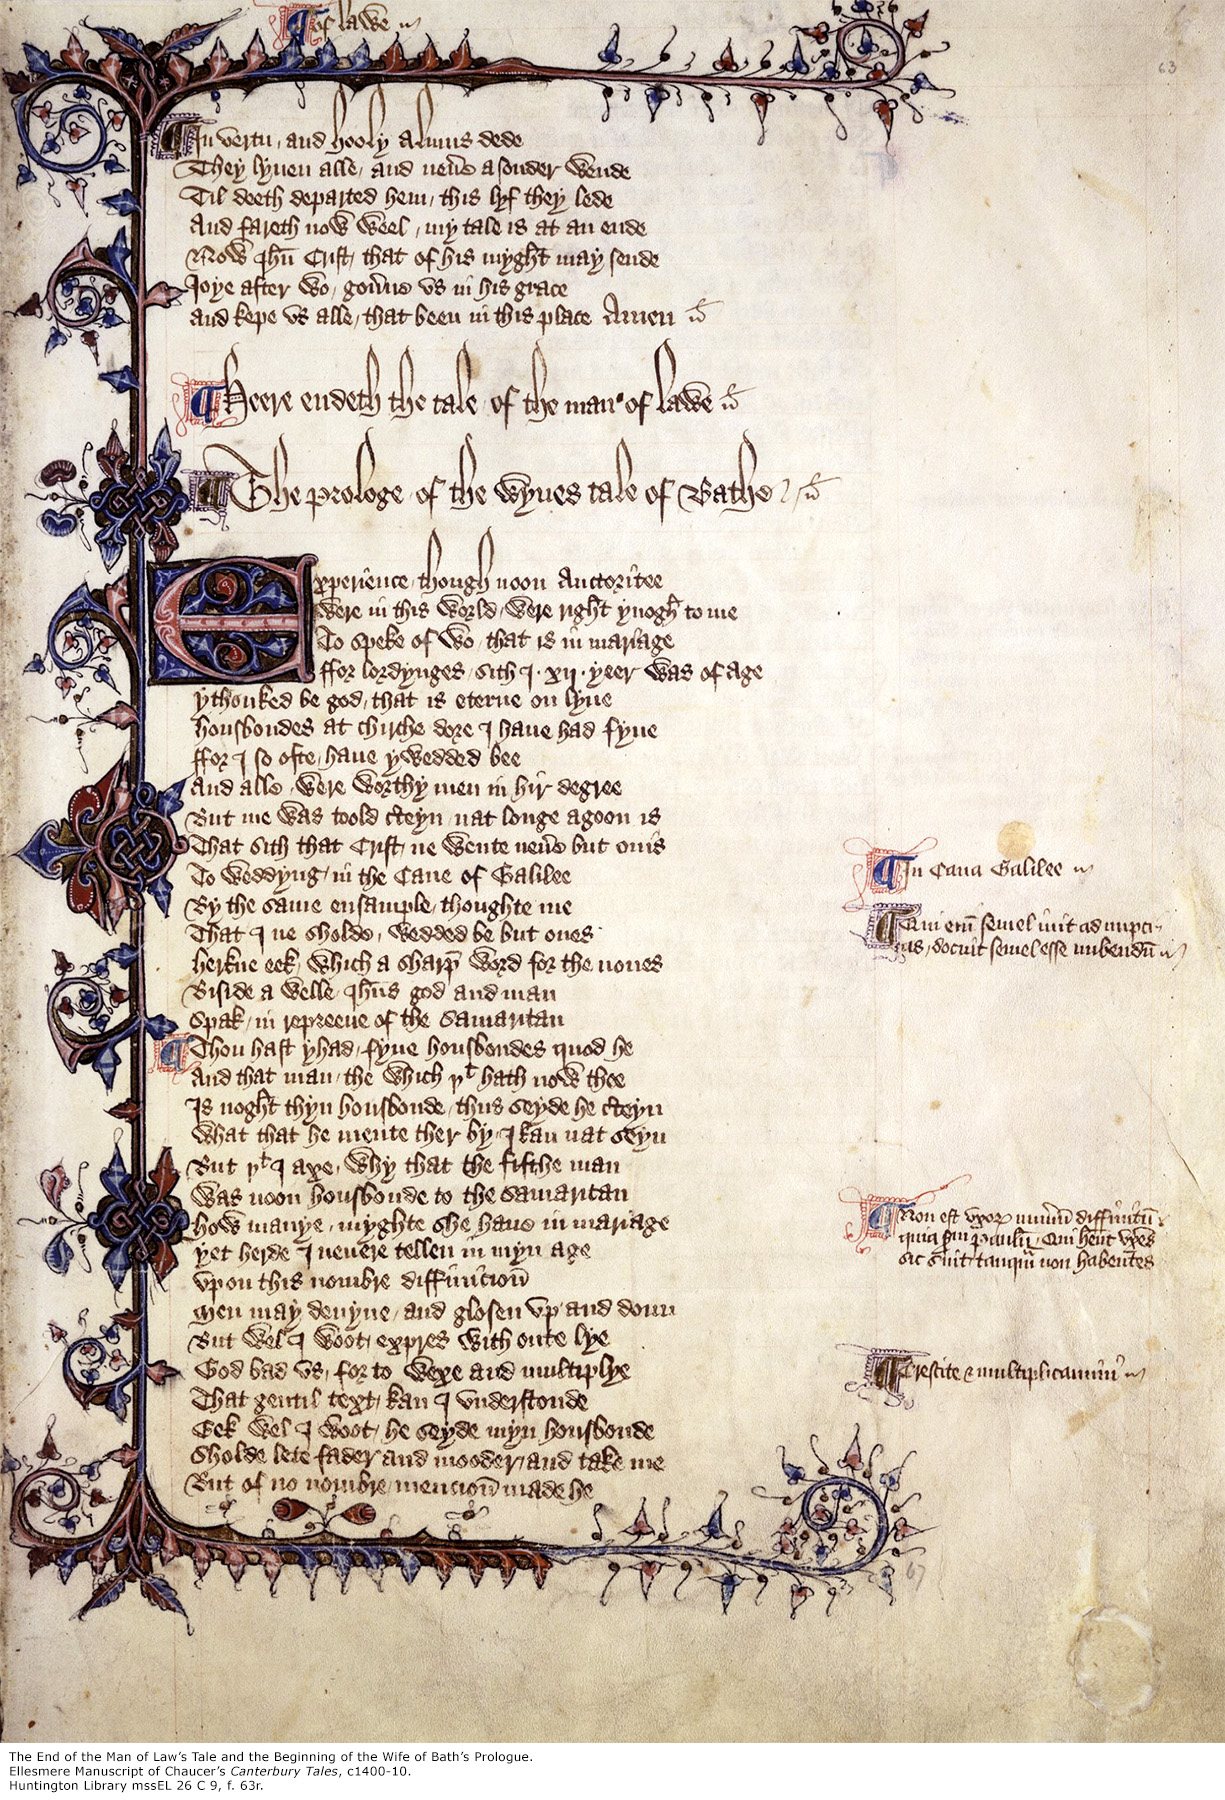 of lawe
63
In vertu / and hooly Almus dede
They lyuen alle / and neu̅e a sonder wende
Til deeth departed hem / this lyf they lede
And fareth now weel / my tale is at an ende
Now Ih̅u Crist / that of his myght may sende
Joye after wo / gou̅ne vs in his grace
And kepe vs alle / that been in this place Amen
Heere endeth the tale of the man of lawe
The prologe of the wyues tale of Bathe
Experience / though noon Auctoritee
Were in this world / were right ynogh to me
To speke of wo / that is in mariage
ffor lordynges / sith I · xij · yeer was of age
ythonked be god / that is eterne on lyue
housbondes at chirche dore I haue had fyue
ffor I so ofte / haue ywedded bee
And alle / were worthy men in hir degree
But me was toold c̅teyn / nat longe agoon is
That sith that Crist / ne wente neu̅e but onis
To weddyng / in the Cane of Galilee
By the same ensample / thoughte me
That I ne sholde / wedded be but ones
herkne eek / which a sharp̅ word for the nones
Biside a welle / Ih̅us god and man
Spak / in repreeue of the Samaritan
Thou hast yhad / fyue housbondes quod he
And that man / the which þᵗ hath now thee
Is noght thyn housbonde / thus seyde he c̅teyn
What that he mente ther by / I kan nat seyn
But þᵗ I axe / why that the fifthe man
Was noon housbonde to the Samaritan
how manye / myghte she haue in mariage
yet herde I neuere tellen in myn age
vpon this nombre diffinicioū
Men may deuyne / and glosen vp and doun
But wel I woot / expres with oute lye
God bad vs / for to wexe and multiplye
That gentil text / kan I vnderstonde
Eek wel I woot / he seyde myn housbonde
Sholde lete fader and mooder / and take me
But of no nombre / mencioū made he
In Cana Galilee
Qui eni̅ semel iuit ad nupci-
as / docuit semel esse nubendū
Non est vxor̅ numerū diffinitū
quia scd̅m Paulū / Qui hent vxes
sic sint tanquā non habentes
Crescite & multiplicamini
67
The End of the Man of Law’s Tale and the Beginning of the Wife of Bath’s Prologue.
Ellesmere Manuscript of Chaucer’s Canterbury Tales, c1400-10.
Huntington Library mssEL 26 C 9, f. 63r.